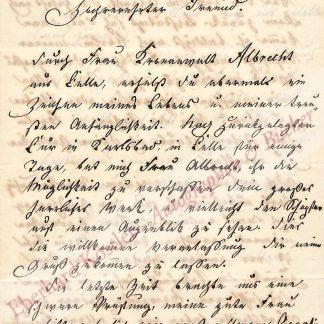 Hochverehrter Freund.
Durch Frau Kronanwalt Albrecht
aus Celle, erhälst du abermals ein
Zeichen meines Lebens u. meiner treu-
sten Anhänglichkeit. Nach zurückgelegter
Cur in Karlsbad, in Celle für einige
Tage, bat mich Frau Albrecht, ihr die
Möglichkeit zu verschaffen dein großes
herrliches Werk, vielleicht den Schöpfer
auf einen Augenblick zu sehen. Dies
die willkommne Veranlassung dir meine
Gruß zukommen zu lassen.
Die letzte Zeit brachte uns eine
schwere Prüfung, meine gute Frau